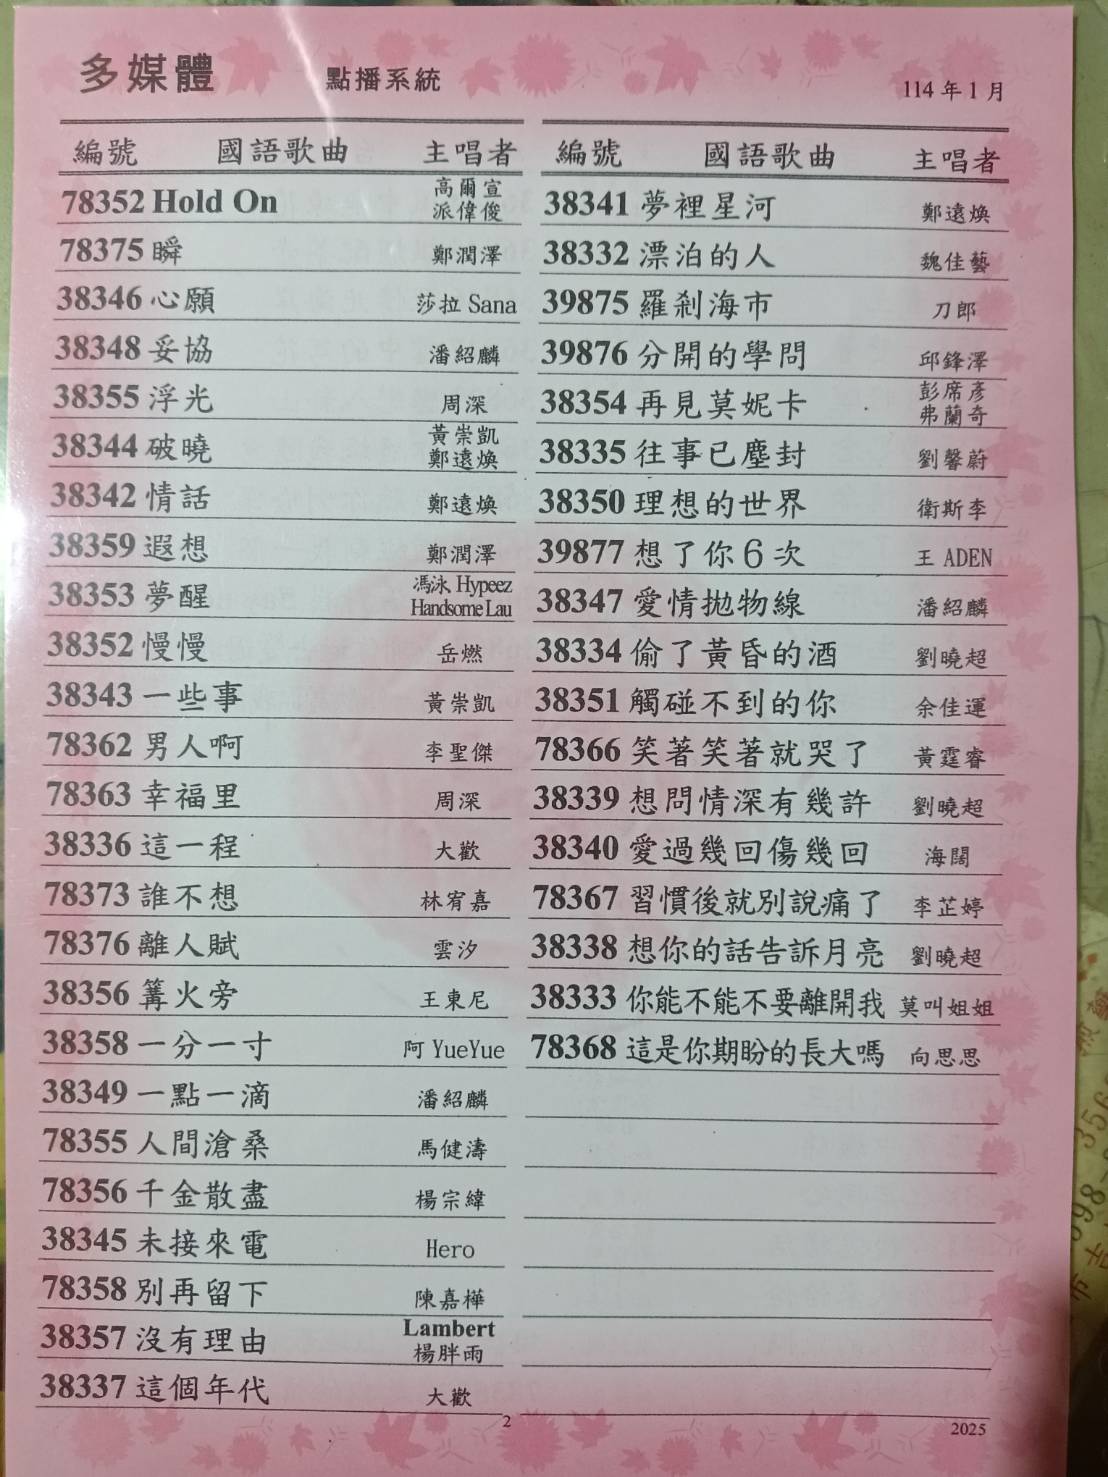 多媒體 點播系統 114 年 1 月
編號 國語歌曲 主唱者
78352 Hold On 高爾宣 派偉俊
78375 瞬 鄭潤澤
38346 心願 莎拉 Sana
38348 妥協 潘紹麟
38355 浮光 周深
38344 破曉 黃崇凱 鄭遠煥
38342 情話 鄭遠煥
38359 遐想 鄭潤澤
38353 夢醒 馮泳 Hypeez Handsome Lau
38352 慢慢 岳燃
38343 一些事 黃崇凱
78362 男人啊 李聖傑
78363 幸福里 周深
38336 這一程 大歡
78373 誰不想 林宥嘉
78376 離人賦 雲汐
38356 篝火旁 王東尼
38358 一分一寸 阿 YueYue
38349 一點一滴 潘紹麟
78355 人間滄桑 馬健濤
78356 千金散盡 楊宗緯
38345 未接來電 Hero
78358 別再留下 陳嘉樺
38357 沒有理由 Lambert 楊胖雨
38337 這個年代 大歡
編號 國語歌曲 主唱者
38341 夢裡星河 鄭遠煥
38332 漂泊的人 魏佳藝
39875 羅剎海市 刀郎
39876 分開的學問 邱鋒澤
38354 再見莫妮卡 彭席彥 弗蘭奇
38335 往事已塵封 劉馨蔚
38350 理想的世界 衛斯李
39877 想了你6次 王 ADEN
38347 愛情拋物線 潘紹麟
38334 偷了黃昏的酒 劉曉超
38351 觸碰不到的你 余佳運
78366 笑著笑著就哭了 黃霆睿
38339 想問情深有幾許 劉曉超
38340 愛過幾回傷幾回 海闊
78367 習慣後就別說痛了 李芷婷
38338 想你的話告訴月亮 劉曉超
38333 你能不能不要離開我 莫叫姐姐
78368 這是你期盼的長大嗎 向思思
2
2025